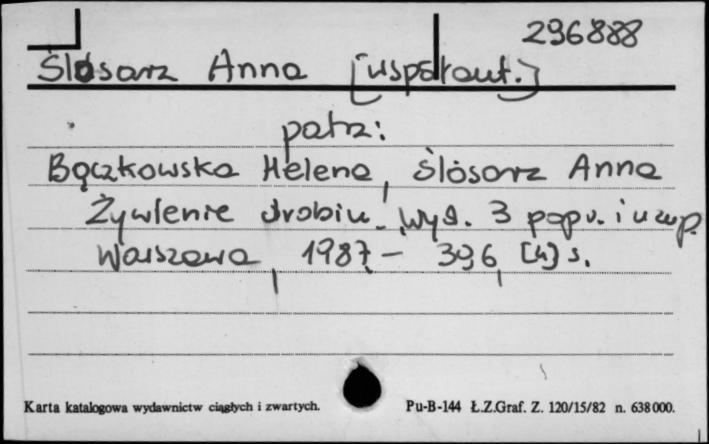 296888
Ślósarz Anna [współaut.]
patrz:
Bączkowska Helena, Ślósarz Anna
Żywienie drobiu. Wyd. 3 popr. i uzup.
Warszawa, 1987. - 396, [4] s.
Karta katalogowa wydawnictw ciągłych i zwartych. Pu-B-144 Ł.Z.Graf. Z. 120/15/82 n. 638000.